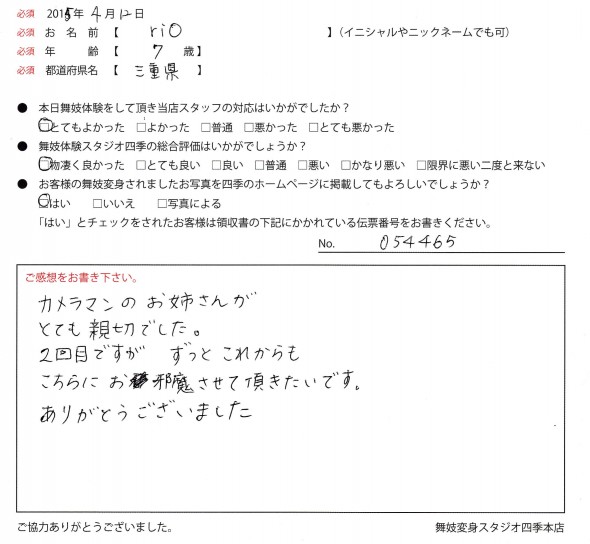 必須 2015年 4月12日
必須 お名前【 rio 】(イニシャルやニックネームでも可)
必須 年齢【 7 歳】
必須 都道府県名【 三重県 】
● 本日舞妓体験をして頂き当店スタッフの対応はいかがでしたか?
□とてもよかった □よかった □普通 □悪かった □とても悪かった
● 舞妓体験スタジオ四季の総合評価はいかがでしょうか?
□物凄く良かった □とても良い □良い □普通 □悪い □かなり悪い □限界に悪い二度と来ない
● お客様の舞妓変身されましたお写真を四季のホームページに掲載してもよろしいでしょうか?
□はい □いいえ □写真による
「はい」とチェックをされたお客様は領収書の下記にかかれている伝票番号をお書きください。
No. 054465
ご感想をお書き下さい。
カメラマンのお姉さんが
とても親切でした。
2回目ですが ずっとこれからも
こちらにお邪魔させて頂きたいです。
ありがとうございました
ご協力ありがとうございました。
舞妓変身スタジオ四季本店